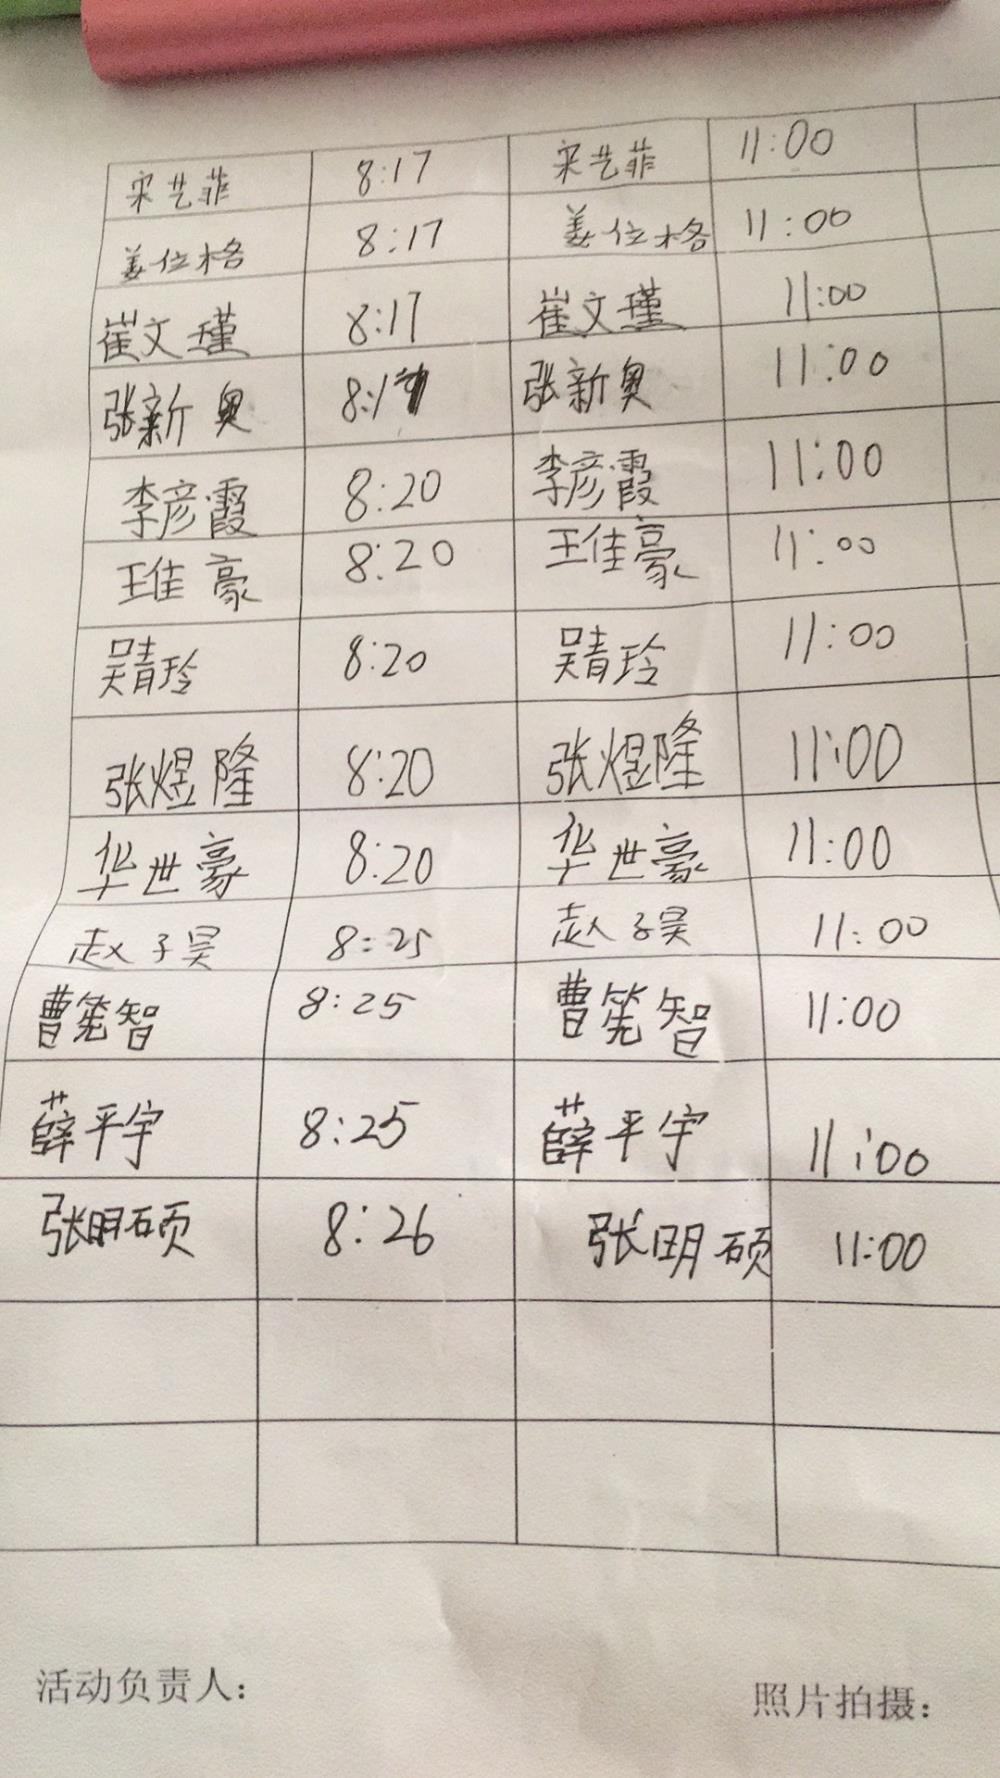 宋艺菲 8:17 宋艺菲 11:00
姜位格 8:17 姜位格 11:00
崔文瑾 8:17 崔文瑾 11:00
张新奥 8:17 张新奥 11:00
李彦霞 8:20 李彦霞 11:00
王佳豪 8:20 王佳豪 11:00
吴青玲 8:20 吴青玲 11:00
张煜隆 8:20 张煜隆 11:00
华世豪 8:20 华世豪 11:00
赵子昊 8:25 赵子昊 11:00
曹筅智 8:25 曹筅智 11:00
薛平宇 8:25 薛平宇 11:00
张明硕 8:26 张明硕 11:00
活动负责人： 照片拍摄：